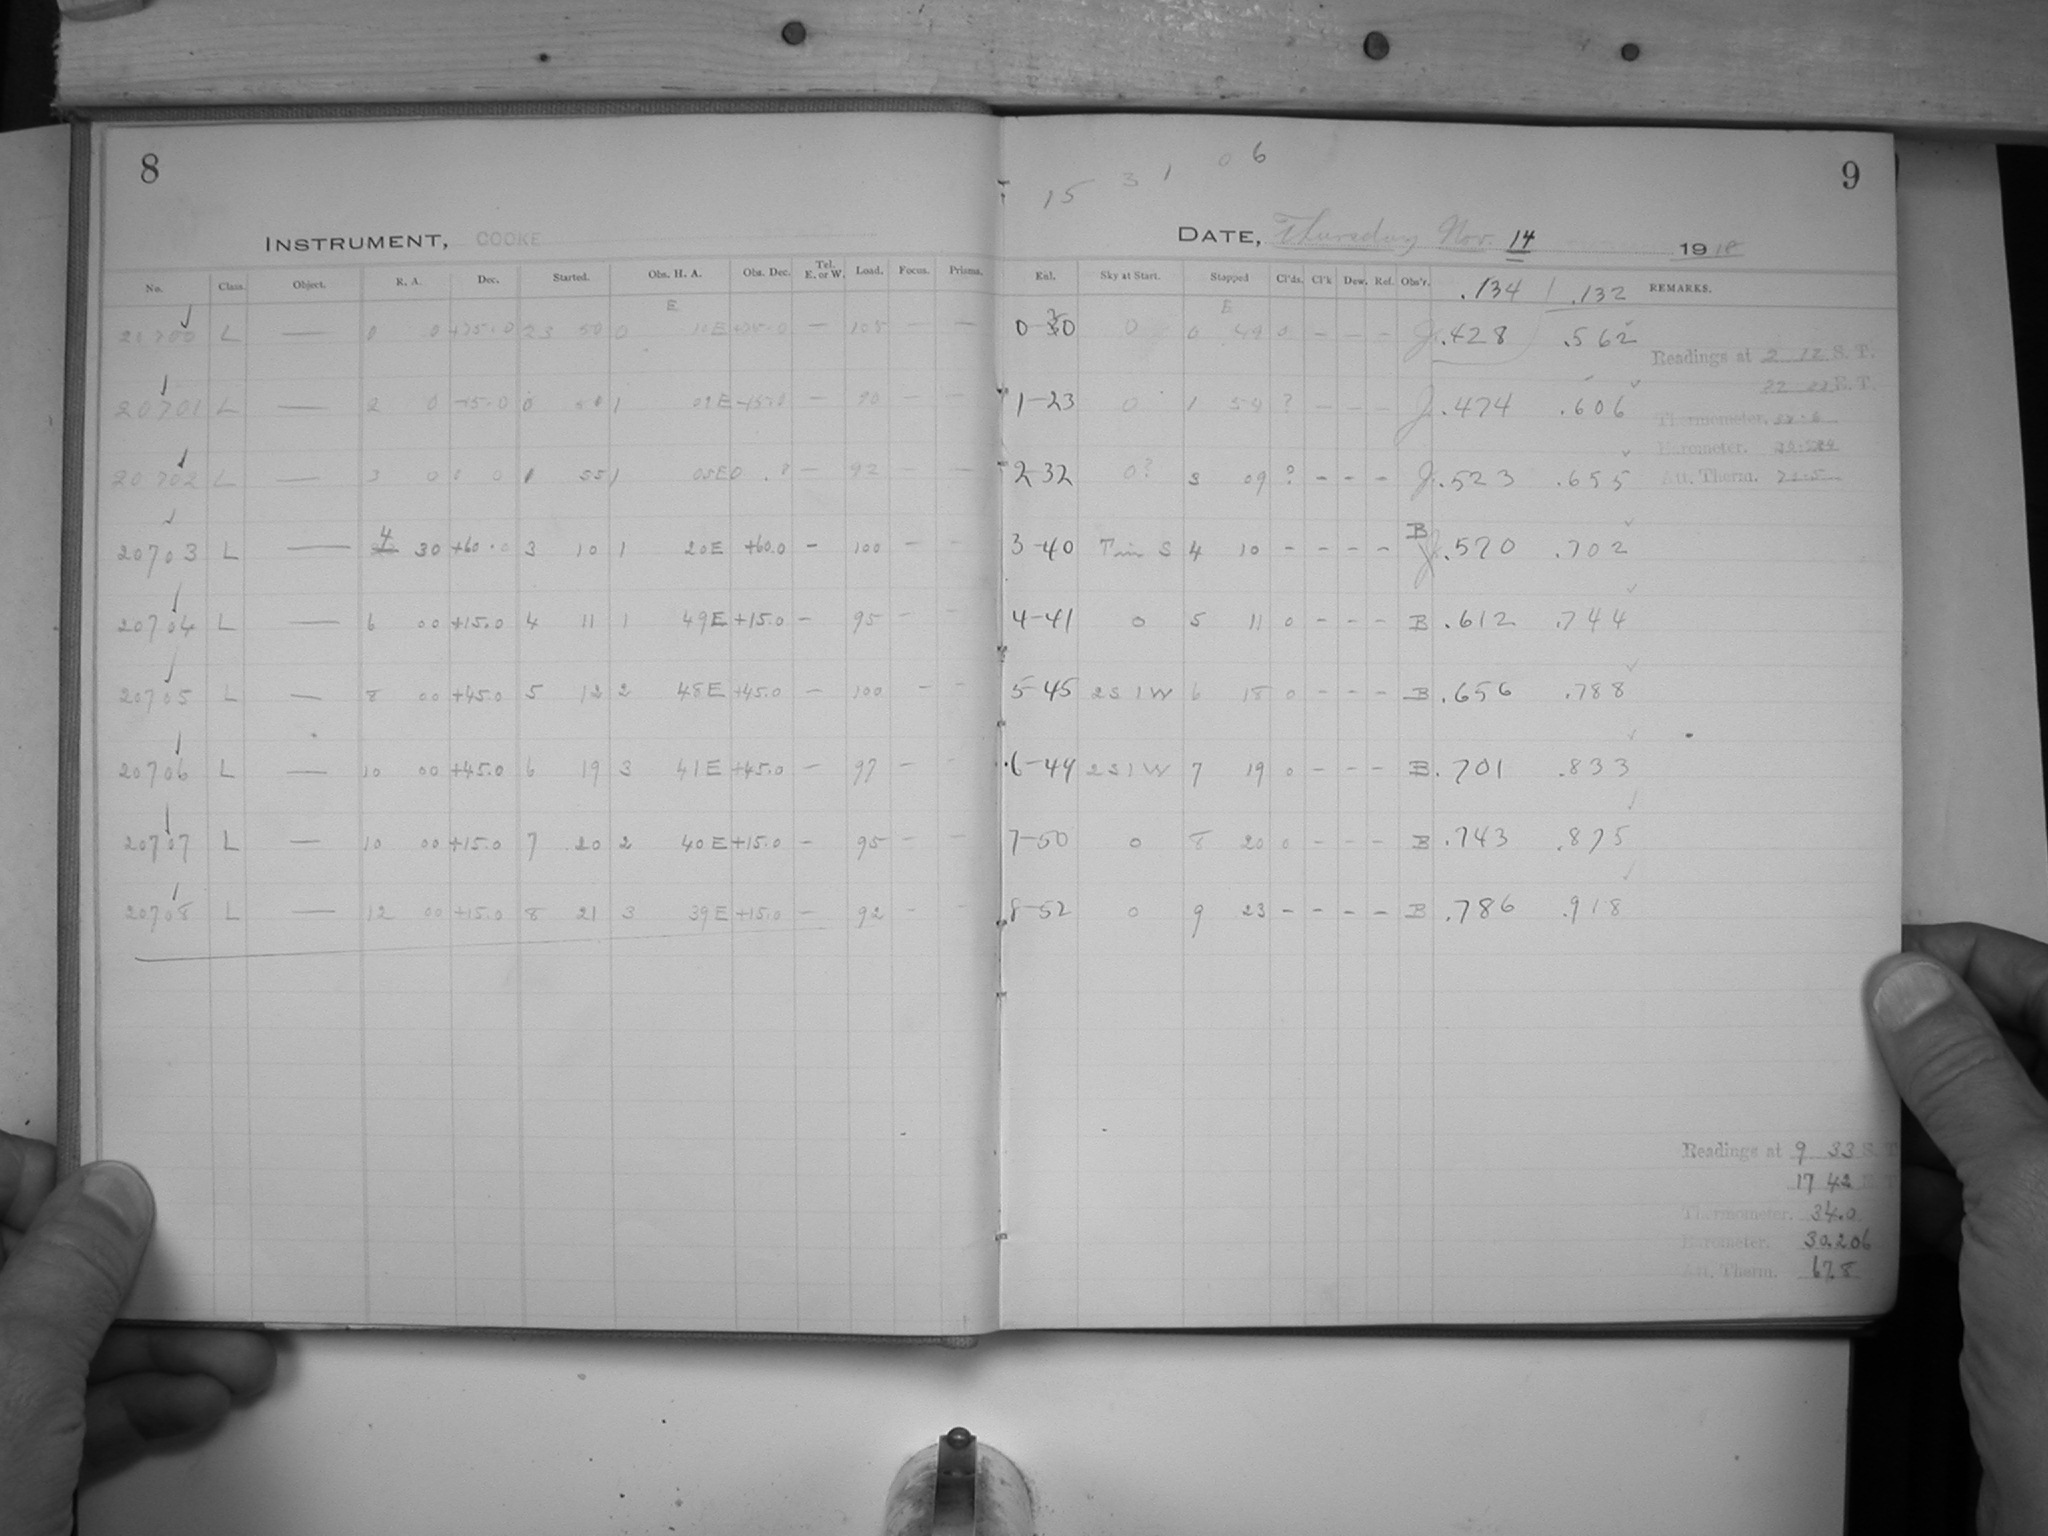 8
INSTRUMENT, COOKE
No. Class. Object. R. A. Dec. Started. Obs. H. A. Obs. Dec. Tel. E. or W. Load. Focus. Prisms.
E
20700 L — 0 0 +75.0 23 50 0 10E +75.0 — 108 — —
20701 L — 2 0 +15.0 0 1 09E +15.0 — 90 — —
20702 L — 3 0 0 1 55 1 05E 0 — 92 — —
20703 L — 4 30 +60.0 3 10 1 20E +60.0 — 100 — —
20704 L — 6 00 +15.0 4 11 1 49E +15.0 — 95 — —
20705 L — 8 00 +45.0 5 12 2 48E +45.0 — 100 — —
20706 L — 10 00 +45.0 6 19 3 41E +45.0 — 97 — —
20707 L — 10 00 +15.0 7 20 2 40E +15.0 — 95 — —
20708 L — 12 00 +15.0 8 21 3 39E +15.0 — 92 — —
9
15 3 1 0 6
DATE, Thursday Nov. 14 1918
Exl. Sky at Start. Stopped Cl'ds. Cl'k Dew. Ref. Obs'r. .134 .132 REMARKS.
E
0-30 0 0 49 0 – – – J. .428 .562
1-23 0 1 54 ? – – – J. .474 .606
2-32 0? 3 09 ? – – – J. .523 .655
3-40 S 4 10 – – – – B .570 .702
4-41 0 5 11 0 – – – B .612 .744
5-45 2S1W 6 18 0 – – – B .656 .788
6-44 2S1W 7 19 0 – – – B .701 .833
7-50 0 8 20 0 – – – B .743 .875
8-52 0 9 23 – – – – B .786 .918
Readings at 2 12 S. T.
E. T.
Thermometer.
Barometer.
Att. Therm.
Readings at 9 33 S. T
17 42
Thermometer. 34.0
Barometer. 30.206
Att. Therm. 67.8